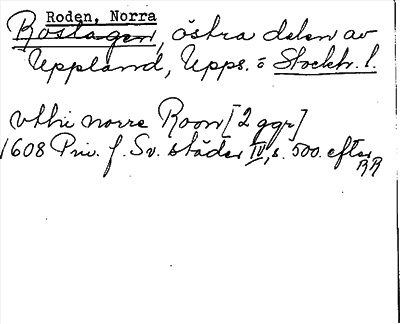 Roden, Norra
Roslagen, östra delen av
Uppland, Upps. o Stockh. l.
vthi norre Roon [2 ggr]
1608 Priv. f. Sv. städer IV, s. 500. efter
RR